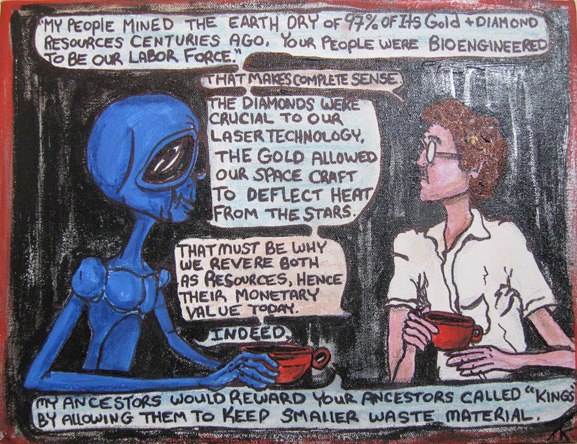 "MY PEOPLE MINED THE EARTH DRY OF 97% OF ITS GOLD + DIAMOND
RESOURCES CENTURIES AGO, YOUR PEOPLE WERE BIOENGINEERED
TO BE OUR LABOR FORCE"
THAT MAKES COMPLETE SENSE
THE DIAMONDS WERE
CRUCIAL TO OUR
LASER TECHNOLOGY,
THE GOLD ALLOWED
OUR SPACE CRAFT
TO DEFLECT HEAT
FROM THE STARS.
THAT MUST BE WHY
WE REVERE BOTH
AS RESOURCES, HENCE
THEIR MONETARY
VALUE TODAY.
INDEED,
MY ANCESTORS WOULD REWARD YOUR ANCESTORS CALLED "KINGS"
BY ALLOWING THEM TO KEEP SMALLER WASTE MATERIAL.